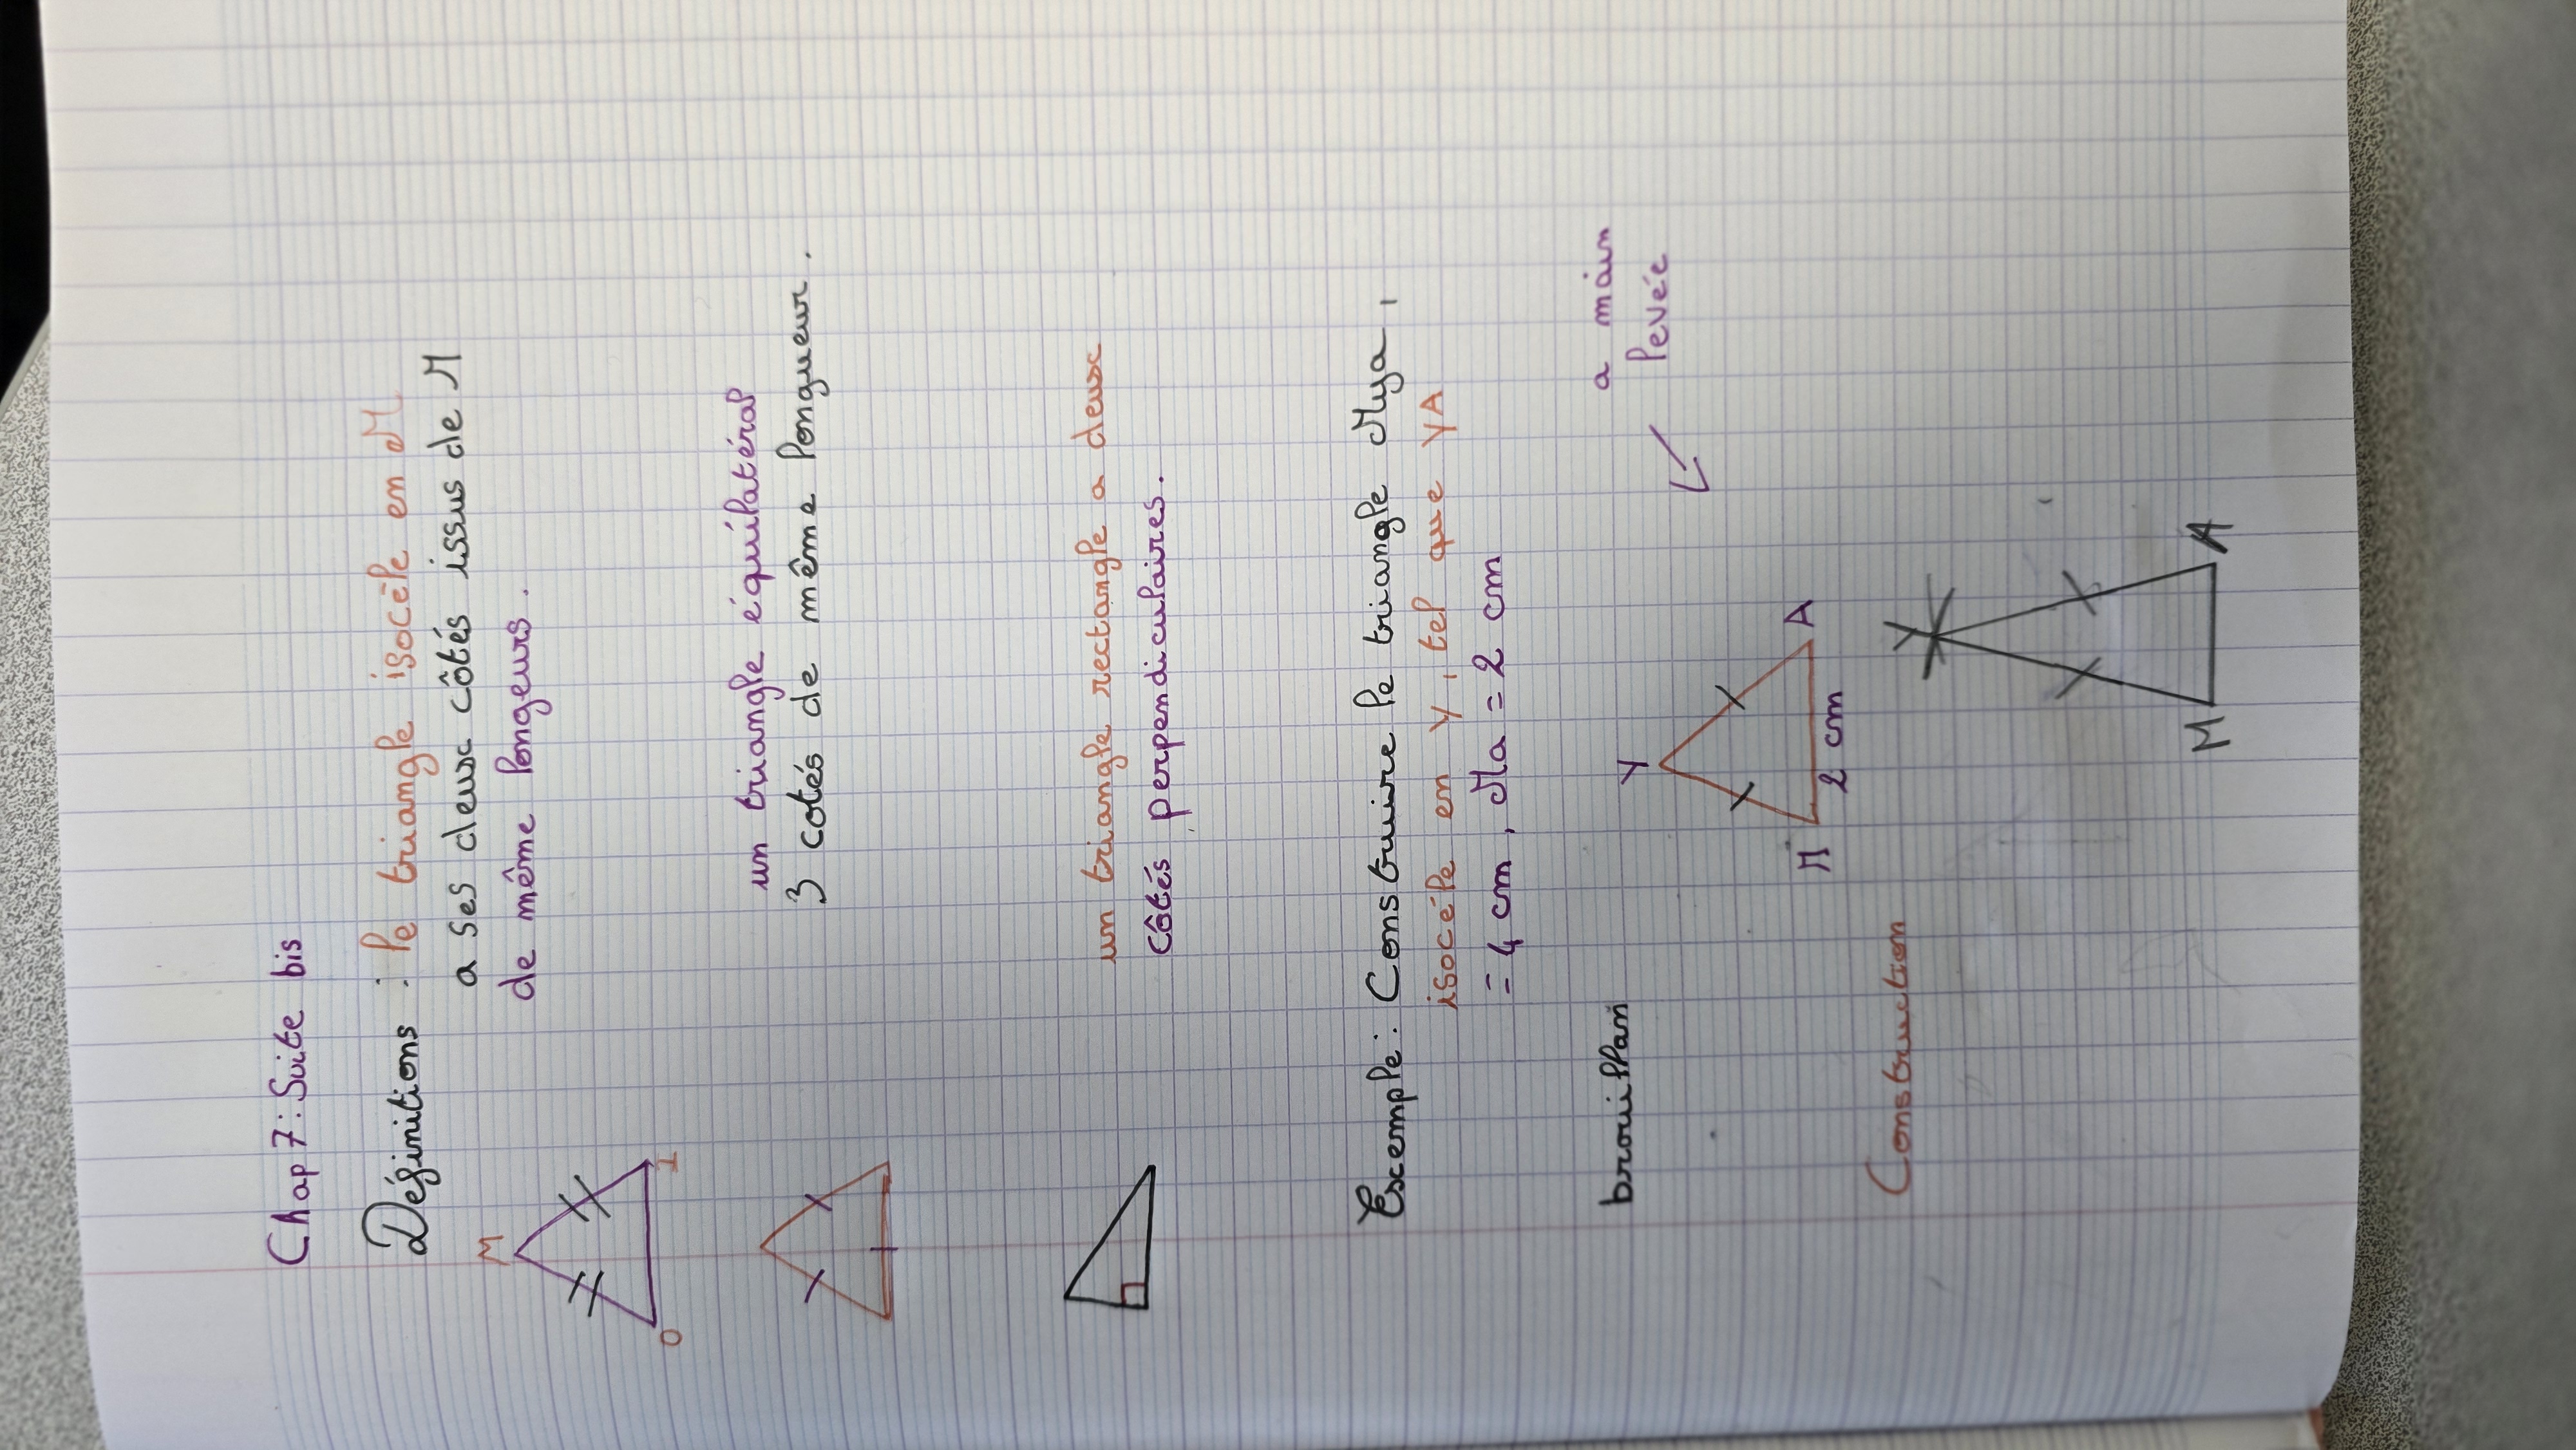 Chap 7: Suite bis
Définitions : le triangle isocèle en M
a ses deux côtés issus de M
de même longeurs.
M
O I
un triangle équilatéral
3 cotés de même longueur.
un triangle rectangle a deux
côtés perpendiculaires.
Exemple: Construire le triangle Mya,
isocéle en Y, tel que YA
= 4 cm, Ma = 2 cm
brouillan
a main
levée
Y
M A
2 cm
Construction
Y
M A